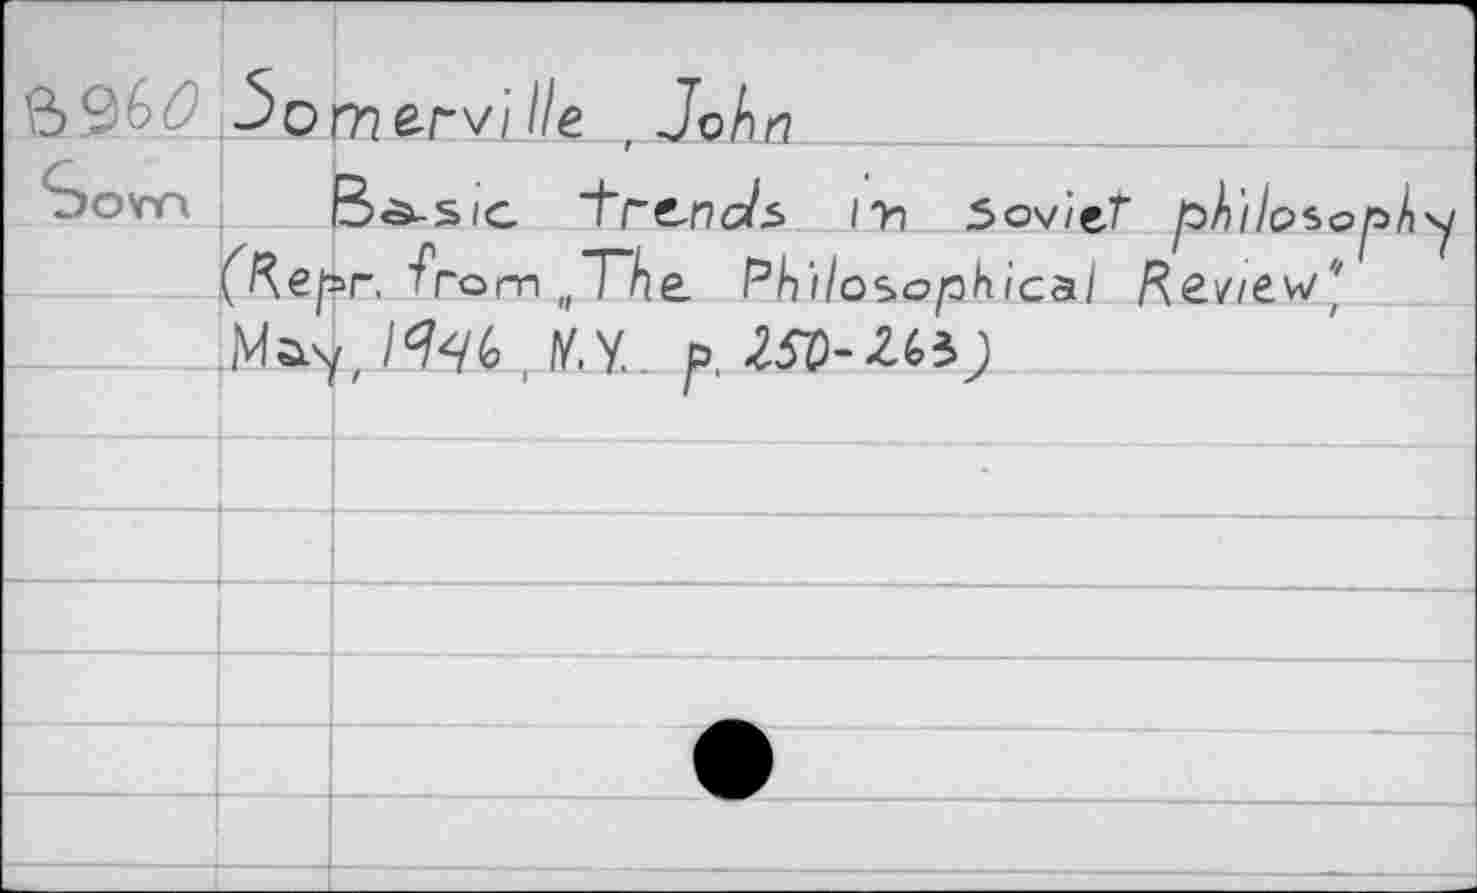 B960 Somerville, John
Som Basic trends in Soviet philosophy
(Repr. from „The Philosophical Review",
May, 1946, N.Y. p. 250-263)